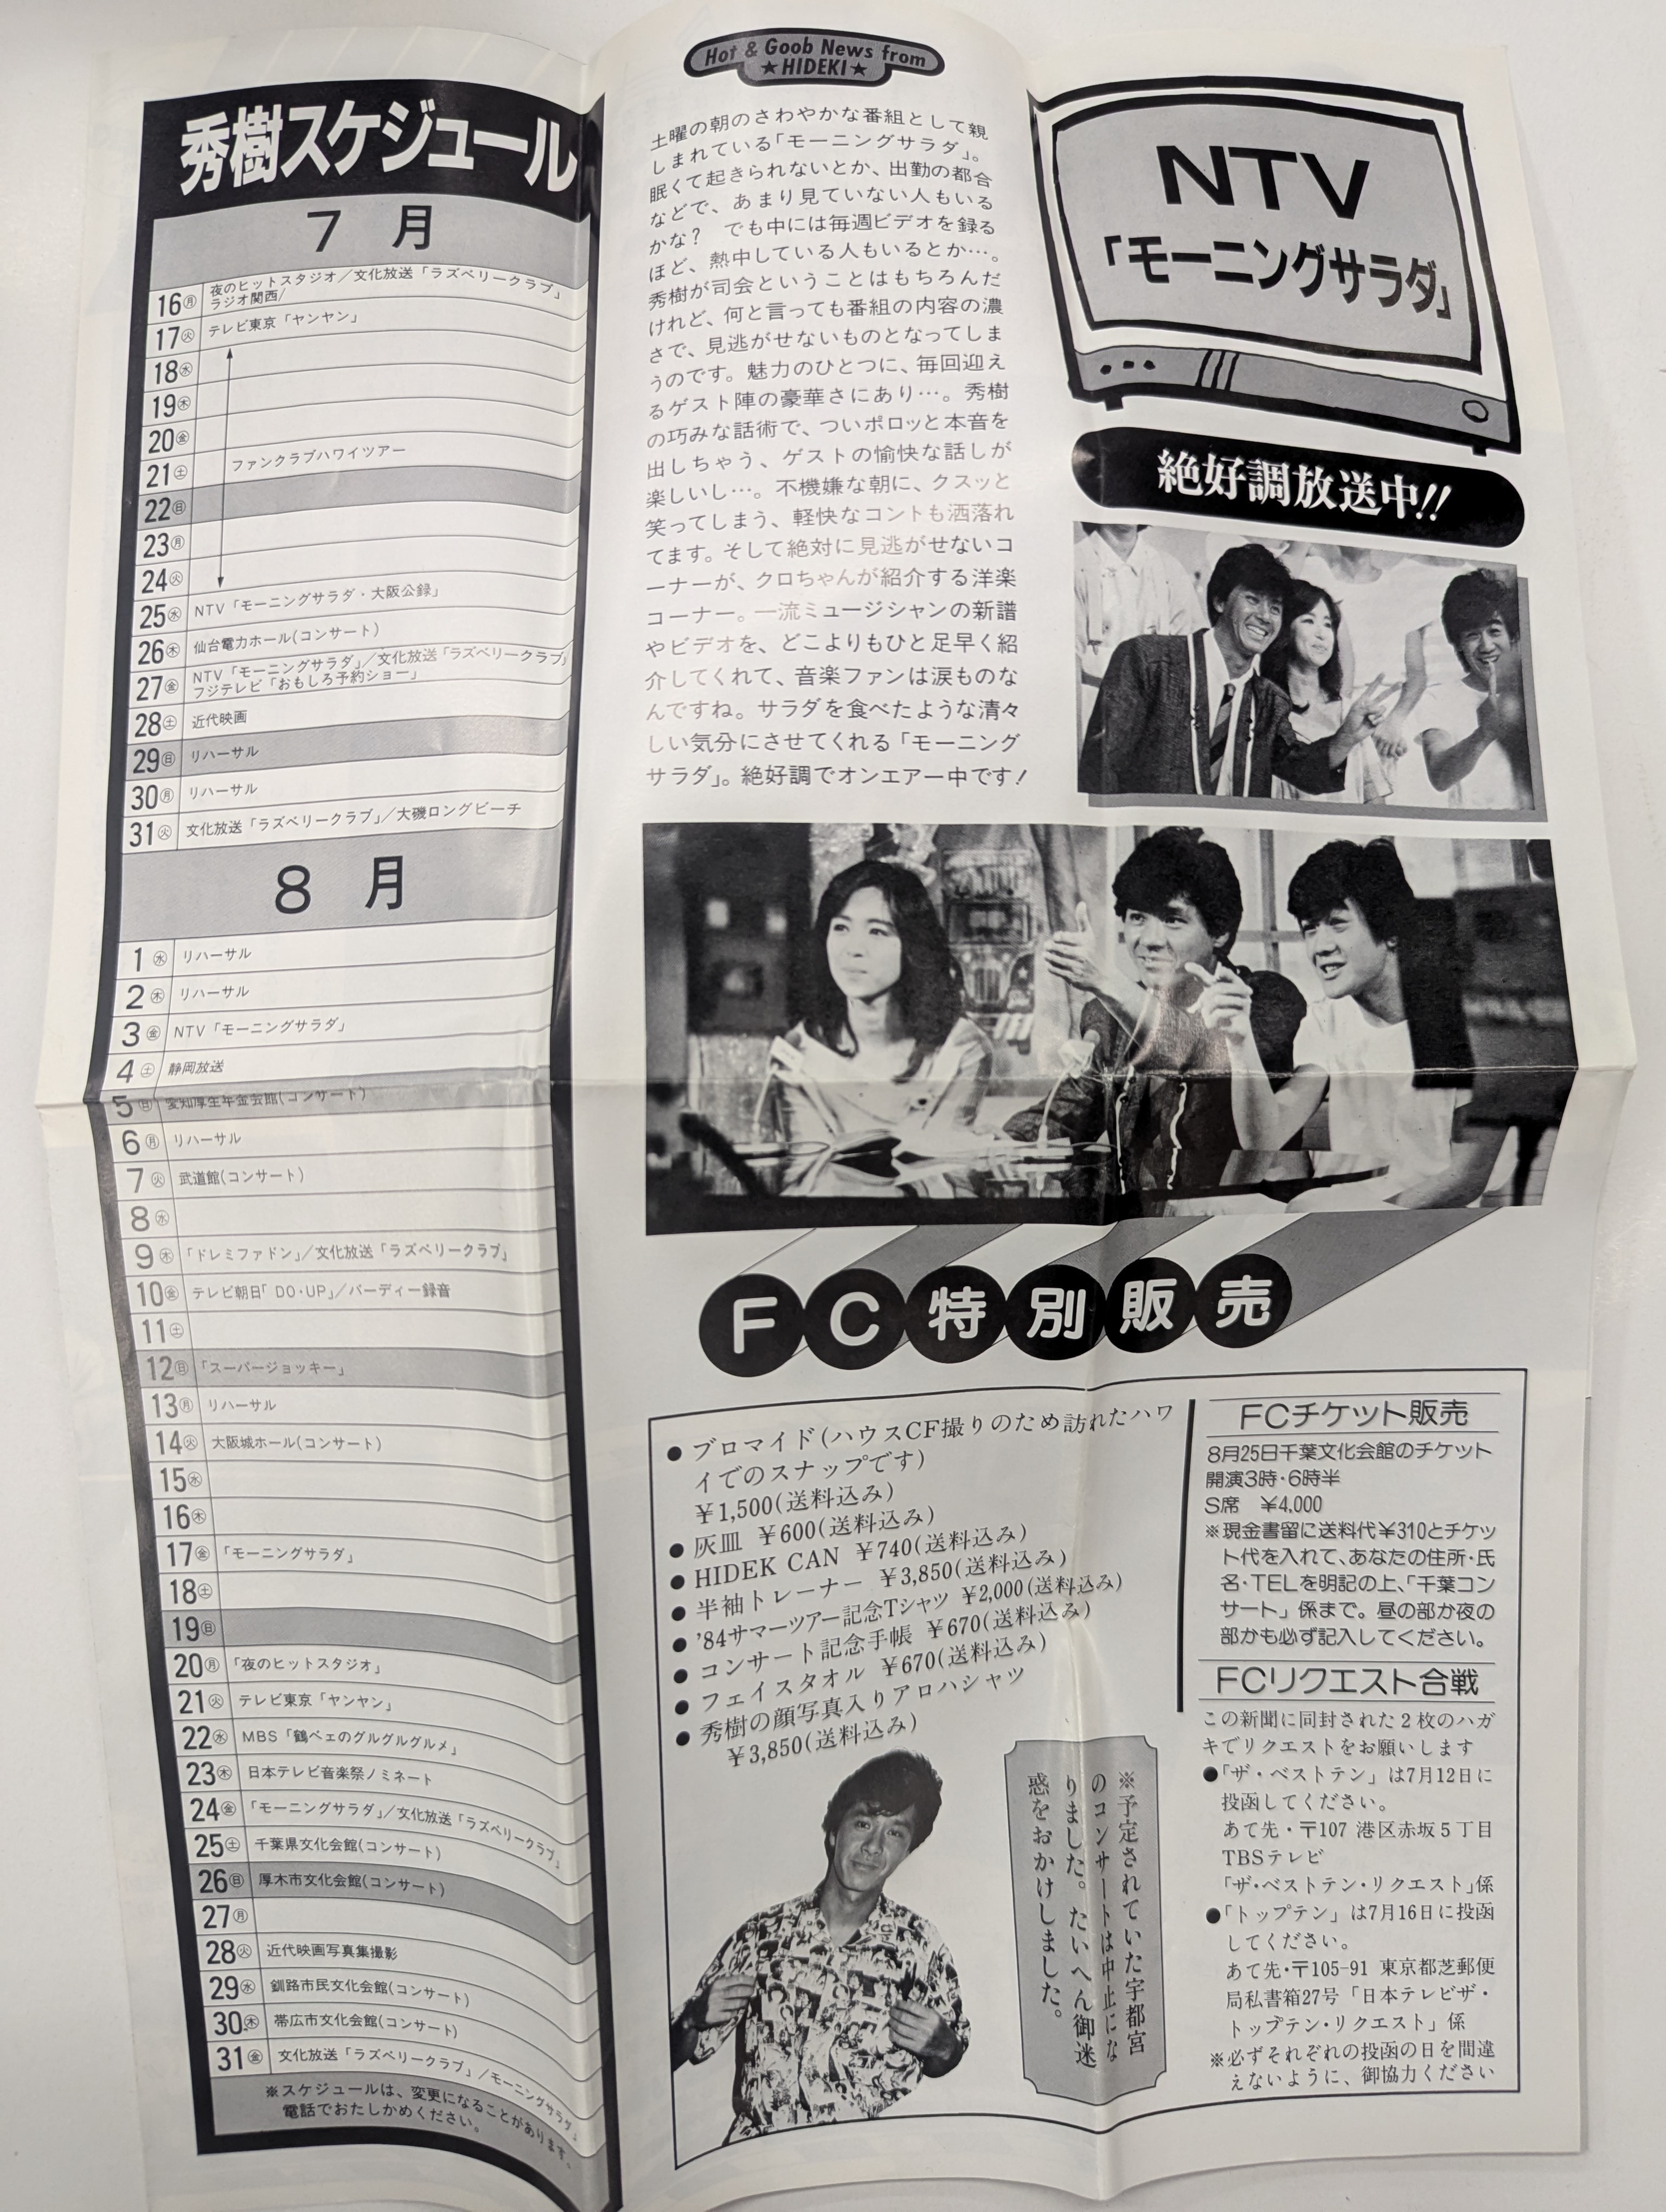 Hot & Goob News from
★HIDEKI★
秀樹スケジュール
7 月
16㊊ 夜のヒットスタジオ／文化放送「ラズベリークラブ」
ラジオ関西/
17㊋ テレビ東京「ヤンヤン」
18㊌
19㊍
20㊎
21㊏ ファンクラブハワイツアー
22㊐
23㊊
24㊋
25㊌ NTV「モーニングサラダ・大阪公録」
26㊍ 仙台電力ホール(コンサート)
27㊎ NTV「モーニングサラダ」／文化放送「ラズベリークラブ」
フジテレビ「おもしろ予約ショー」
28㊏ 近代映画
29㊐ リハーサル
30㊊ リハーサル
31㊋ 文化放送「ラズベリークラブ」／大磯ロングビーチ
8 月
1㊌ リハーサル
2㊍ リハーサル
3㊎ NTV「モーニングサラダ」
4㊏ 静岡放送
5㊐ 愛知厚生年金会館(コンサート)
6㊊ リハーサル
7㊋ 武道館(コンサート)
8㊌
9㊍ 「ドレミファドン」／文化放送「ラズベリークラブ」
10㊎ テレビ朝日「DO・UP」／バーディー録音
11㊏
12㊐ 「スーパージョッキー」
13㊊ リハーサル
14㊋ 大阪城ホール(コンサート)
15㊌
16㊍
17㊎ 「モーニングサラダ」
18㊏
19㊐
20㊊ 「夜のヒットスタジオ」
21㊋ テレビ東京「ヤンヤン」
22㊌ MBS「鶴ベェのグルグルグルメ」
23㊍ 日本テレビ音楽祭ノミネート
24㊎ 「モーニングサラダ」／文化放送「ラズベリークラブ」
25㊏ 千葉県文化会館(コンサート)
26㊐ 厚木市文化会館(コンサート)
27㊊
28㊋ 近代映画写真集撮影
29㊌ 釧路市民文化会館(コンサート)
30㊍ 帯広市文化会館(コンサート)
31㊎ 文化放送「ラズベリークラブ」／モーニングサラダ」
※スケジュールは、変更になることがあります。
電話でおたしかめください。
土曜の朝のさわやかな番組として親
しまれている「モーニングサラダ」。
眠くて起きられないとか、出勤の都合
などで、あまり見ていない人もいる
かな？ でも中には毎週ビデオを録る
ほど、熱中している人もいるとか…。
秀樹が司会ということはもちろんだ
けれど、何と言っても番組の内容の濃
さで、見逃がせないものとなってしま
うのです。魅力のひとつに、毎回迎え
るゲスト陣の豪華さにあり…。秀樹
の巧みな話術で、ついポロッと本音を
出しちゃう、ゲストの愉快な話しが
楽しいし…。不機嫌な朝に、クスッと
笑ってしまう、軽快なコントも洒落れ
てます。そして絶対に見逃がせないコ
ーナーが、クロちゃんが紹介する洋楽
コーナー。一流ミュージシャンの新譜
やビデオを、どこよりもひと足早く紹
介してくれて、音楽ファンは涙ものな
んですね。サラダを食べたような清々
しい気分にさせてくれる「モーニング
サラダ」。絶好調でオンエアー中です！
NTV
「モーニングサラダ」
絶好調放送中!!
FC特別販売
●ブロマイド(ハウスCF撮りのため訪れたハワ
イでのスナップです)
￥1,500(送料込み)
●灰皿 ￥600(送料込み)
●HIDEK CAN ￥740(送料込み)
●半袖トレーナー ￥3,850(送料込み)
●'84サマーツアー記念Tシャツ ￥2,000(送料込み)
●コンサート記念手帳 ￥670(送料込み)
●フェイスタオル ￥670(送料込み)
●秀樹の顔写真入りアロハシャツ
￥3,850(送料込み)
※予定されていた宇都宮
のコンサートは中止にな
りました。たいへん御迷
惑をおかけしました。
FCチケット販売
8月25日千葉文化会館のチケット
開演3時・6時半
S席 ￥4,000
※現金書留に送料代￥310とチケッ
ト代を入れて、あなたの住所・氏
名・TELを明記の上、「千葉コン
サート」係まで。昼の部か夜の
部かも必ず記入してください。
FCリクエスト合戦
この新聞に同封された２枚のハガ
キでリクエストをお願いします
●「ザ・ベストテン」は7月12日に
投函してください。
あて先・〒107 港区赤坂５丁目
TBSテレビ
「ザ・ベストテン・リクエスト」係
●「トップテン」は7月16日に投函
してください。
あて先・〒105-91 東京都芝郵便
局私書箱27号「日本テレビザ・
トップテン・リクエスト」係
※必ずそれぞれの投函の日を間違
えないように、御協力ください